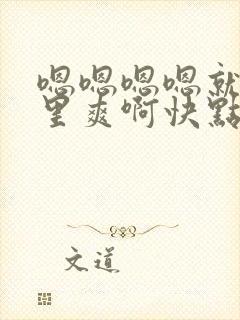 嗯嗯嗯嗯就
里爽啊快點
文道